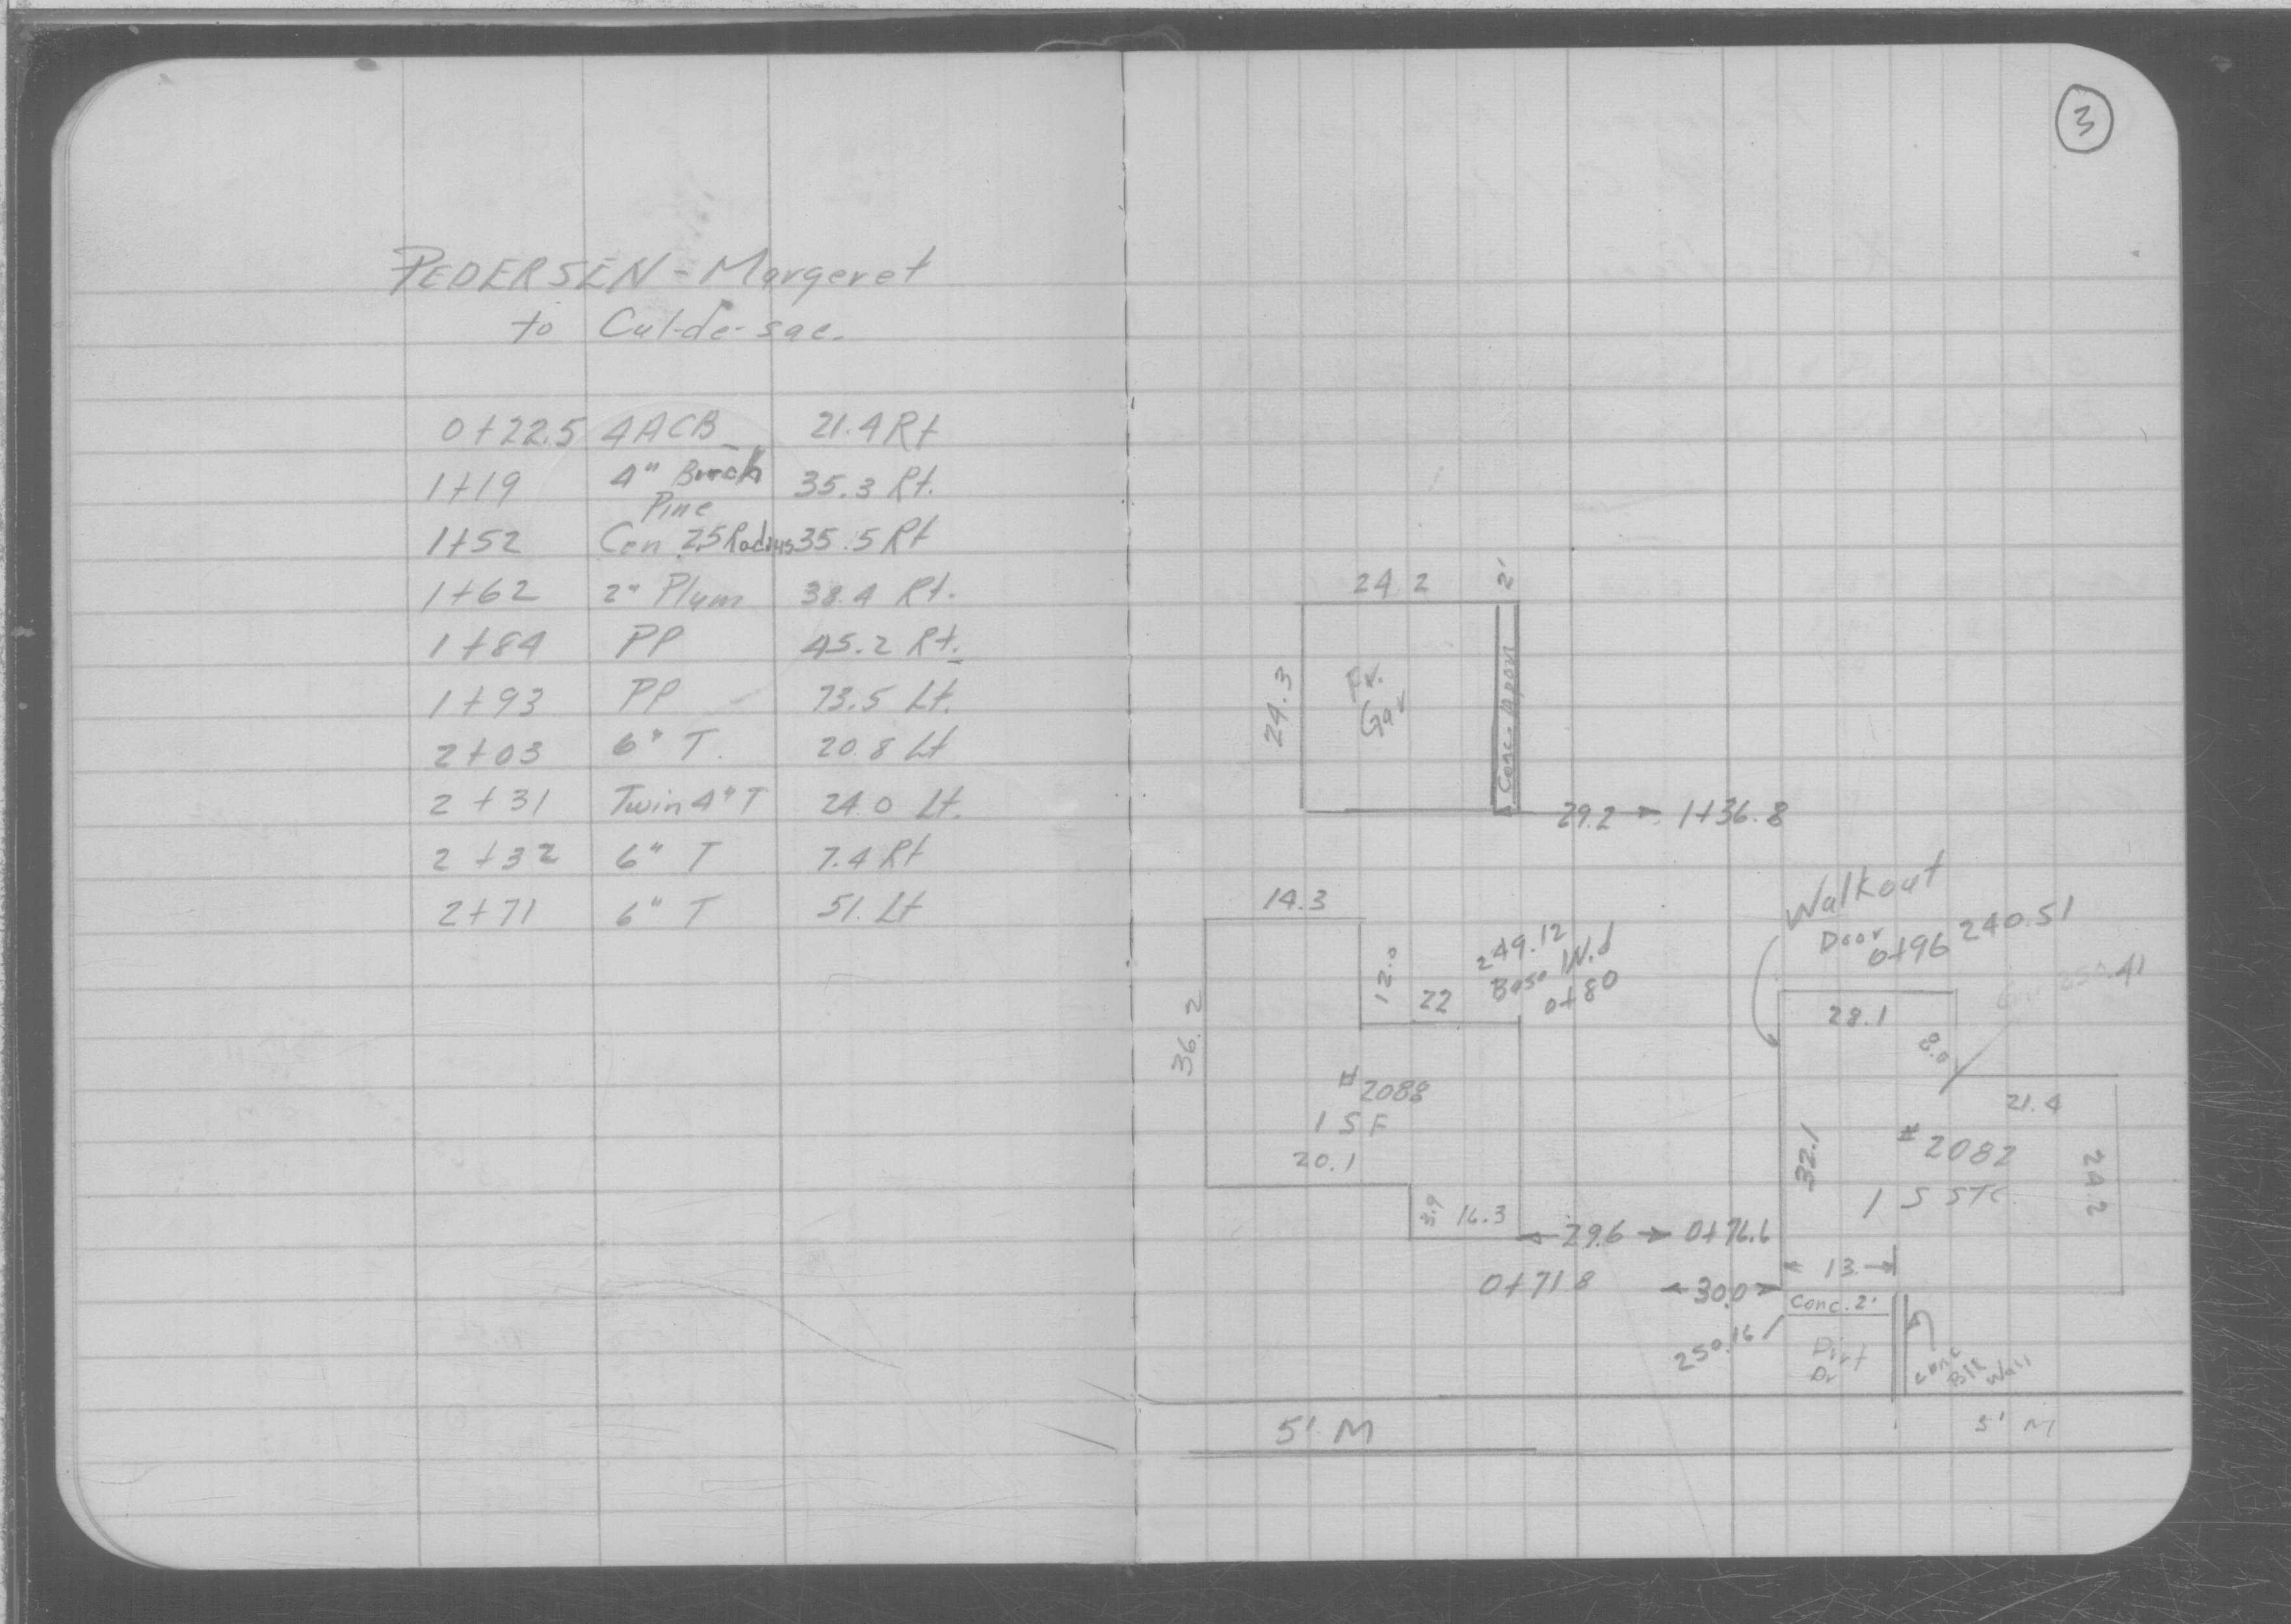 PEDERSEN - Margeret
to Cul-de-sac.
0+22.5 4ACB 21.4 Rt
1+19 4" Birch 35.3 Rt.
Pine
1+52 Cen 25 Radius 35.5 Rt
1+62 2" Plum 38.4 Rt.
1+84 PP 45.2 Rt.
1+93 PP 73.5 Lt.
2+03 6" T. 20.8 Lt
2+31 Twin 4" T 24.0 Lt.
2+32 6" T 7.4 Rt
2+71 6" T 51. Lt
3
24.2 2'
24.3
Fr.
Gar
Conc. Apron
29.2 1+36.8
14.3
36.2
12.0
22
249.12
Base W.d
0+80
#2088
1 S F
20.1
3.9 16.3
29.6 0+76.6
0+71.8
Walkout
Door
0+96 240.51
250.41
28.1
8.0
21.4
32.1
#2082
1 S STC.
24.2
13.
30.0
Conc. 2'
250.16
Dirt
Dr
Conc
Blk
Wall
5' M
5' M